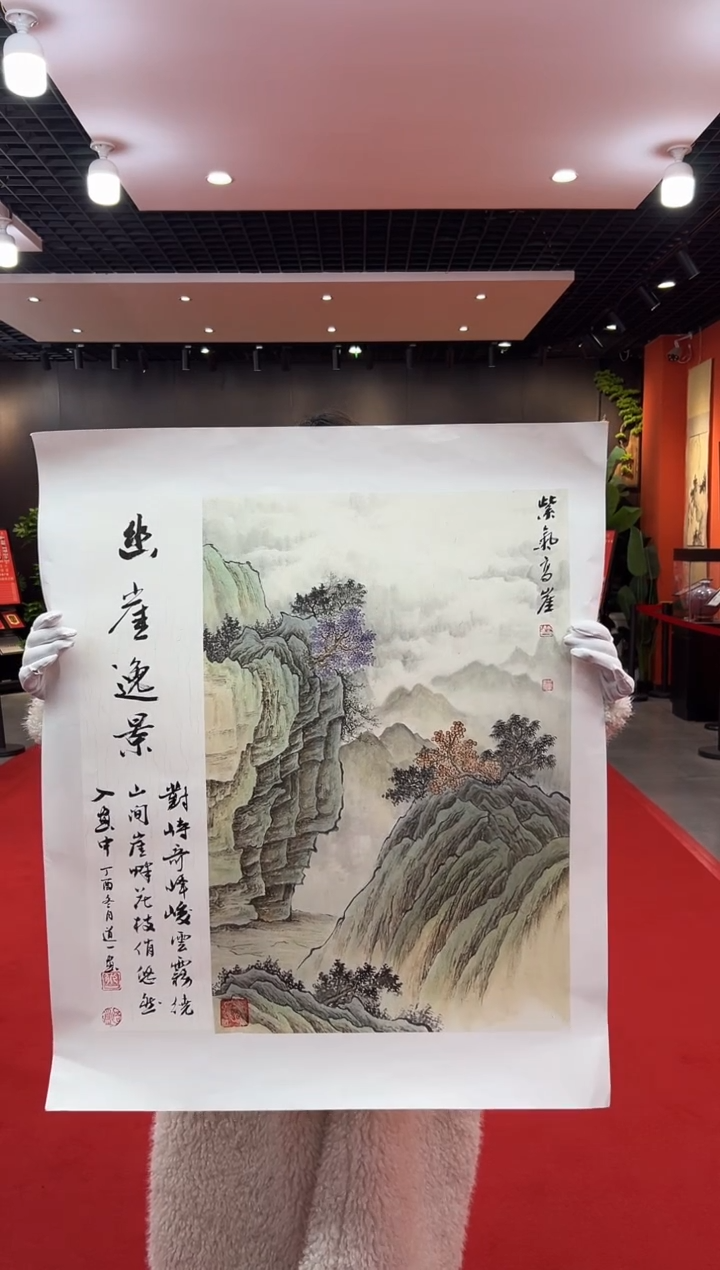 紫氣高崖
幽崖逸景
對峙奇峰峻雲霧繞
山間崖畔花枝俏悠然
入畫中 丁酉冬月道一畫